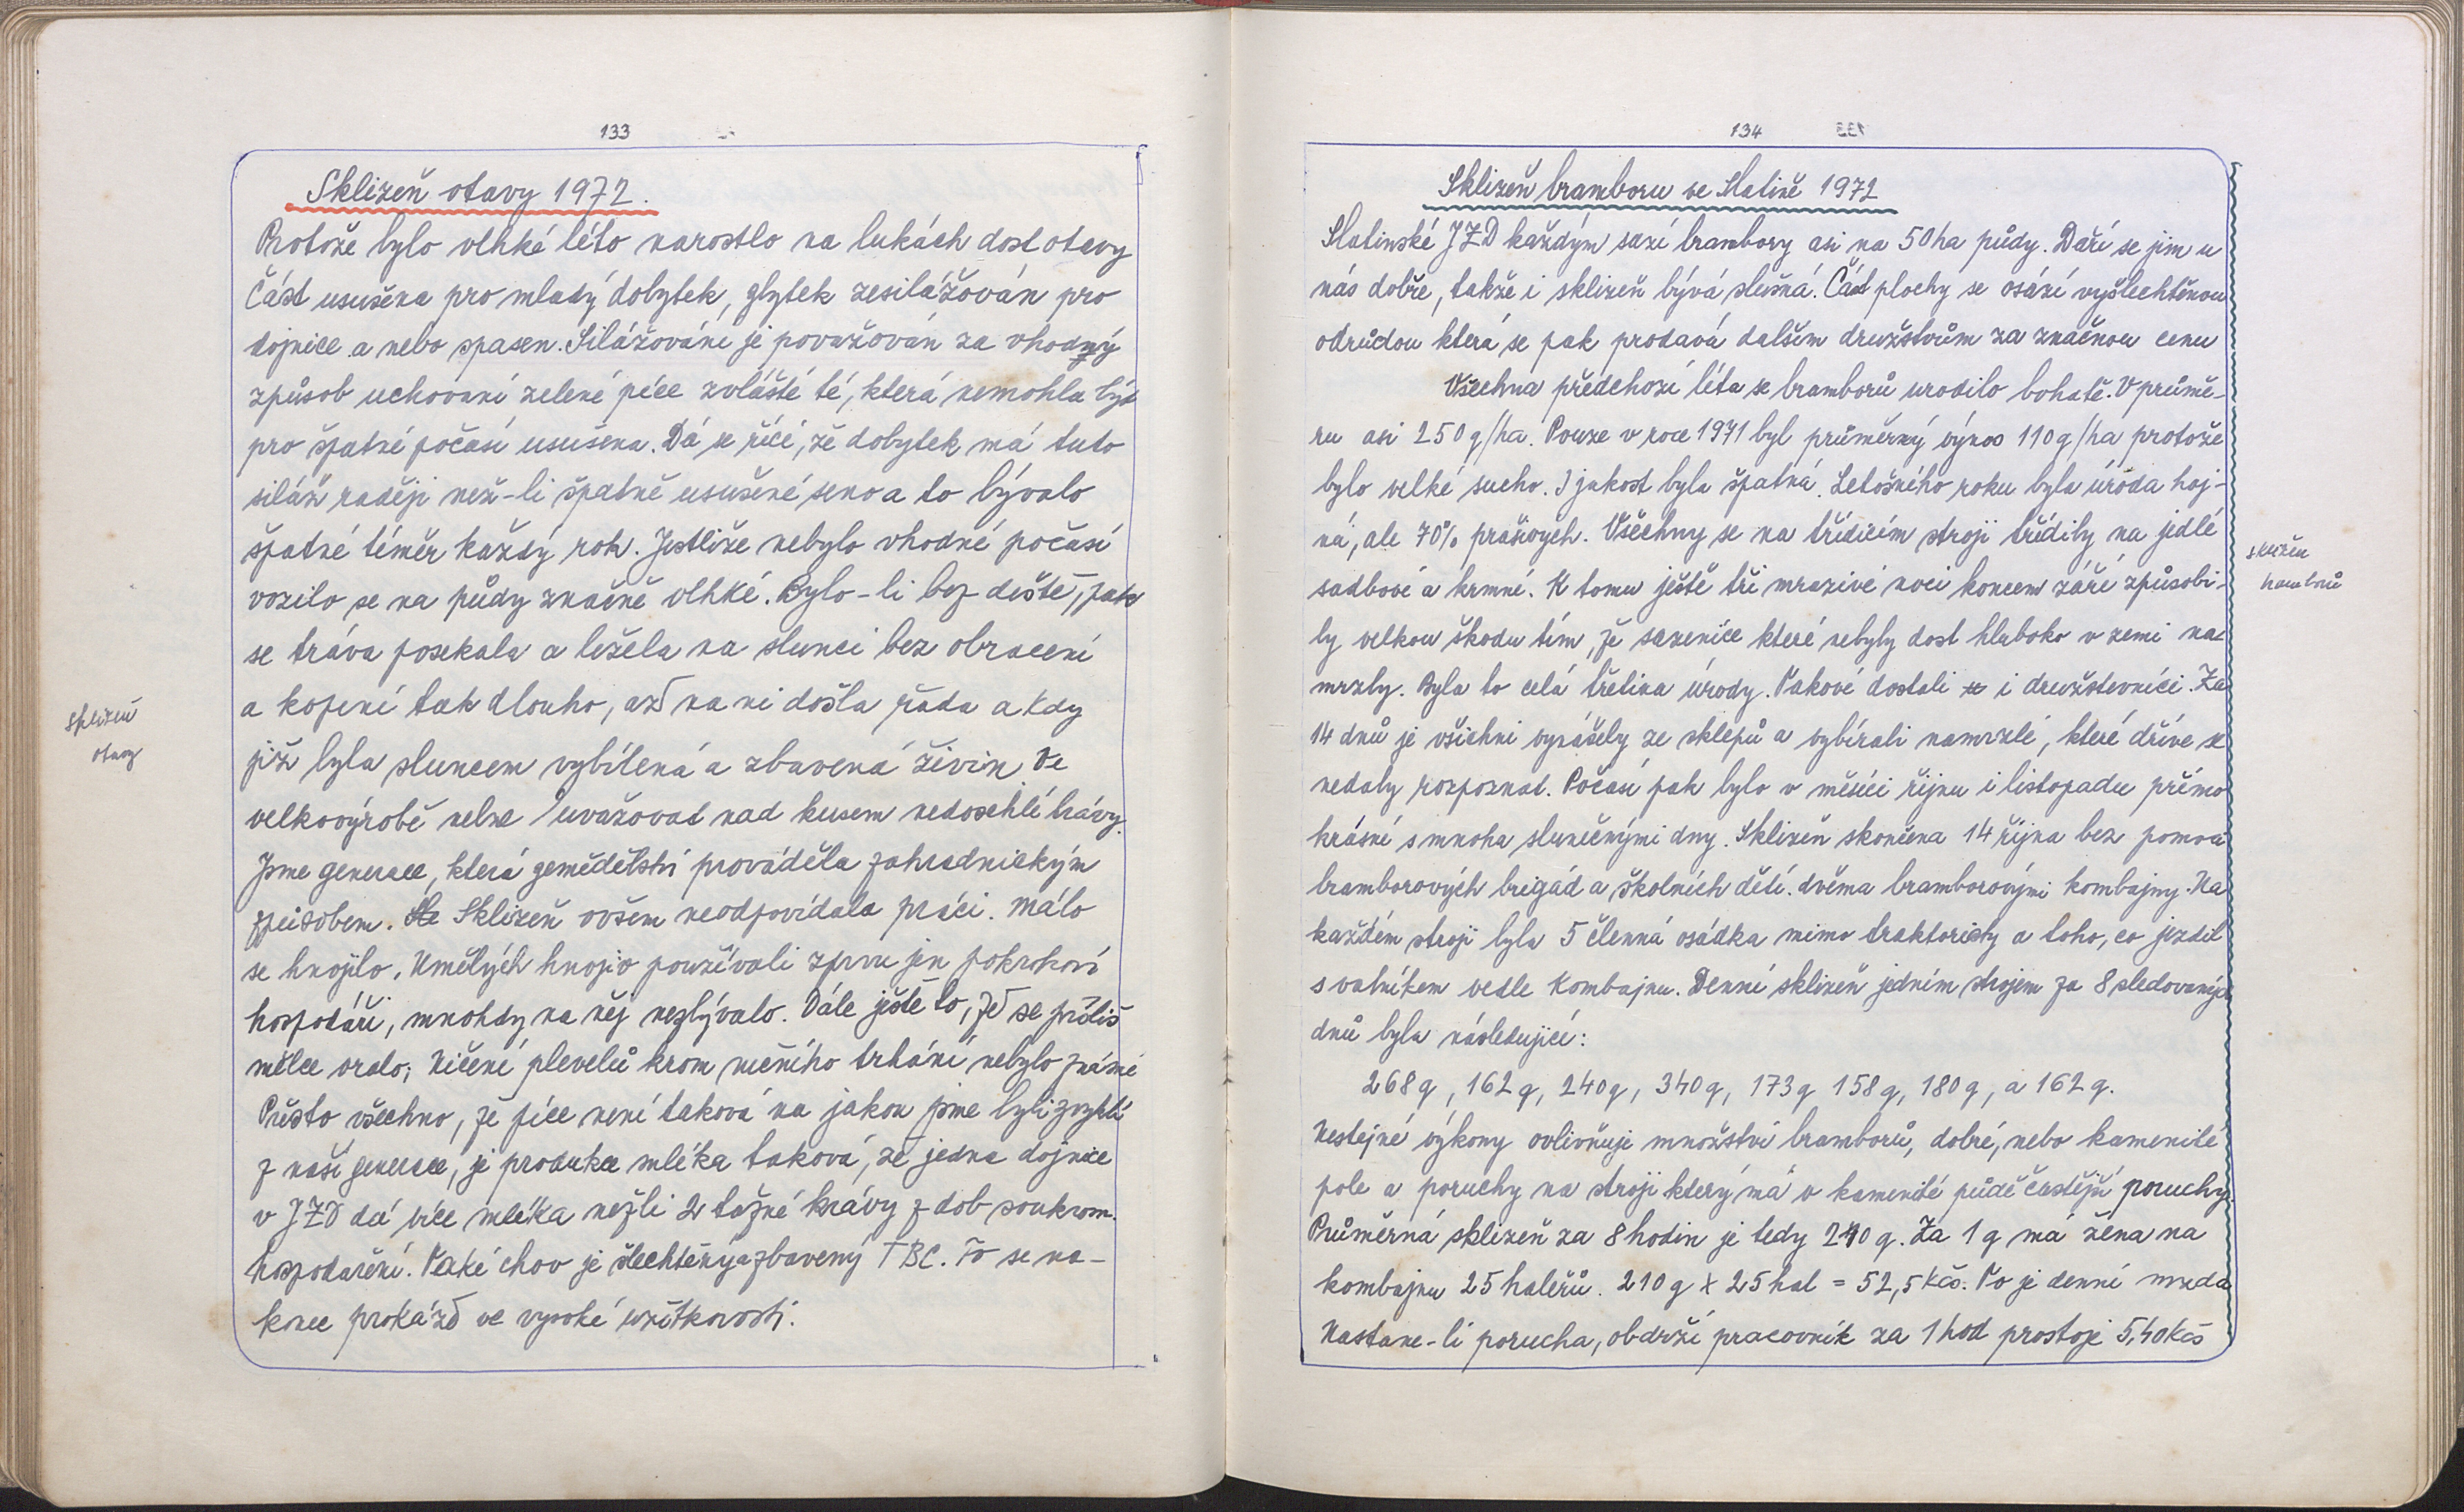 133
Sklizeň otavy 1972.
Protože bylo vlhké léto narostlo na lukách dost otavy
Část usušena pro mladý dobytek, zbytek zesilážován pro
dojnice a nebo spasen. Silážování je považován za vhodný
způsob uchování zelené píce zvláště té, která nemohla být
pro špatné počasí usušena. Dá se říci, že dobytek má tuto
siláž raději než-li špatně usušené seno a to bývalo
špatné téměr každý rok. Jestliže nebylo vhodné počasí
vozilo se na půdy značně vlhké. Bylo-li bez deště, pak
se tráva posekala a ležela na slunci bez obracení
a kopení tak dlouho, až na ni došla řada a kdy
již byla sluncem vybílená a zbavená živin Ve
velkovýrobě nelze uvažovat nad kusem nedoschlé trávy.
Jsme generace, která zemědělství prováděla zahradnickým
způsobem. Sklizeň ovšem neodpovídala práci. Málo
se hnojilo. Umělých hnojiv používali zprvu jen pokrokoví
hospodáři, mnohdy na něj nezbývalo. Dále ještě to, že se příliš
mělce oralo; Ničení plevelů krom ručního trhání nebylo známé
Přesto všechno, že píce není taková na jakou jsme byli zvyklí
z naší generace, je produkce mléka taková, že jedna dojnice
v JZD dá více mléka nežli 2 tažné krávy z dob soukrom.
hospodaření. Také chov je šlechtěný a zbavený TBC. To se na-
konec prokáže ve vysoké užitkovosti.
Sklizeň
otavy
134
Sklizeň bramboru ve Slatině 1972
Slatinské JZD každým sazí brambory asi na 50 ha půdy. Daří se jim u
nás dobře, takže i sklizeň bývá slušná. Část plochy se osází vyšlechtěnou
odrůdou která se pak prodavá dalším družstvům za značnou cenu
Všechna předchozí léta se bramborů urodilo bohatě. V průmě-
ru asi 250 q/ha. Pouze v roce 1971 byl průměrný výnos 110 q/ha protože
bylo velké sucho. I jakost byla špatná. Letošního roku byla úroda hoj-
ná, ale 70% prašivých. Všechny se na třídicím stroji třídily na jedlé
sadbové a krmné. K tomu ještě tři mrazivé noci koncem září způsobi-
ly velkou škodu tím, že sazenice které nebyly dost hluboko v zemi na-
mrzly. Byla to celá třetina úrody. Takové dostali i družstevníci. Za
14 dnů je všichni vynášely ze sklepů a vybírali namrzlé, které dříve se
nedaly rozpoznat. Počasí pak bylo v měsíci říjnu i listopadu přímo
krásné s mnoha slunečnými dny. Sklizeň skončena 14 října bez pomoci
bramborových brigád a školních dětí. dvěma bramborovými kombajny. Na
každém stroji byla 5 členná osádka mimo traktoristy a toho, co jezdil
s valníkem vedle kombajnu. Denní sklizeň jedním strojem za 8 sledovaných
dnů byla následující:
268 q, 162 q, 240 q, 340 q, 173 q 158 q, 180 q, a 162 q.
Nestejné výkony ovlivňuje množství bramborů, dobré, nebo kamenité
pole a poruchy na stroji který má v kamenité půdě častější poruchy
Průměrná sklizeň za 8 hodin je tedy 210 q. Za 1 q má žena na
kombajnu 25 haléřů. 210 q x 25 hal = 52,5 Kčs. To je denní mzda
Nastane-li porucha, obdrží pracovník za 1 hod prostoje 5,40 Kčs
sklizeň
bramborů